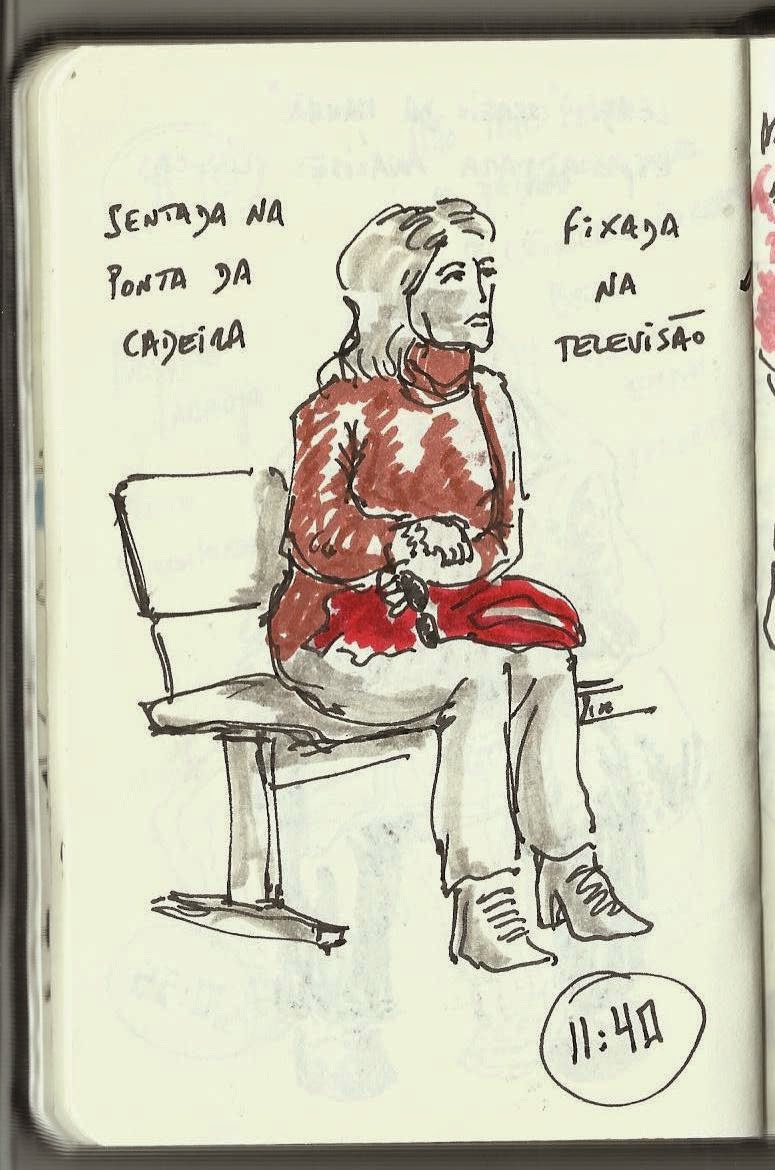 SENTADA NA
PONTA DA
CADEIRA
FIXADA
NA
TELEVISÃO
11:40